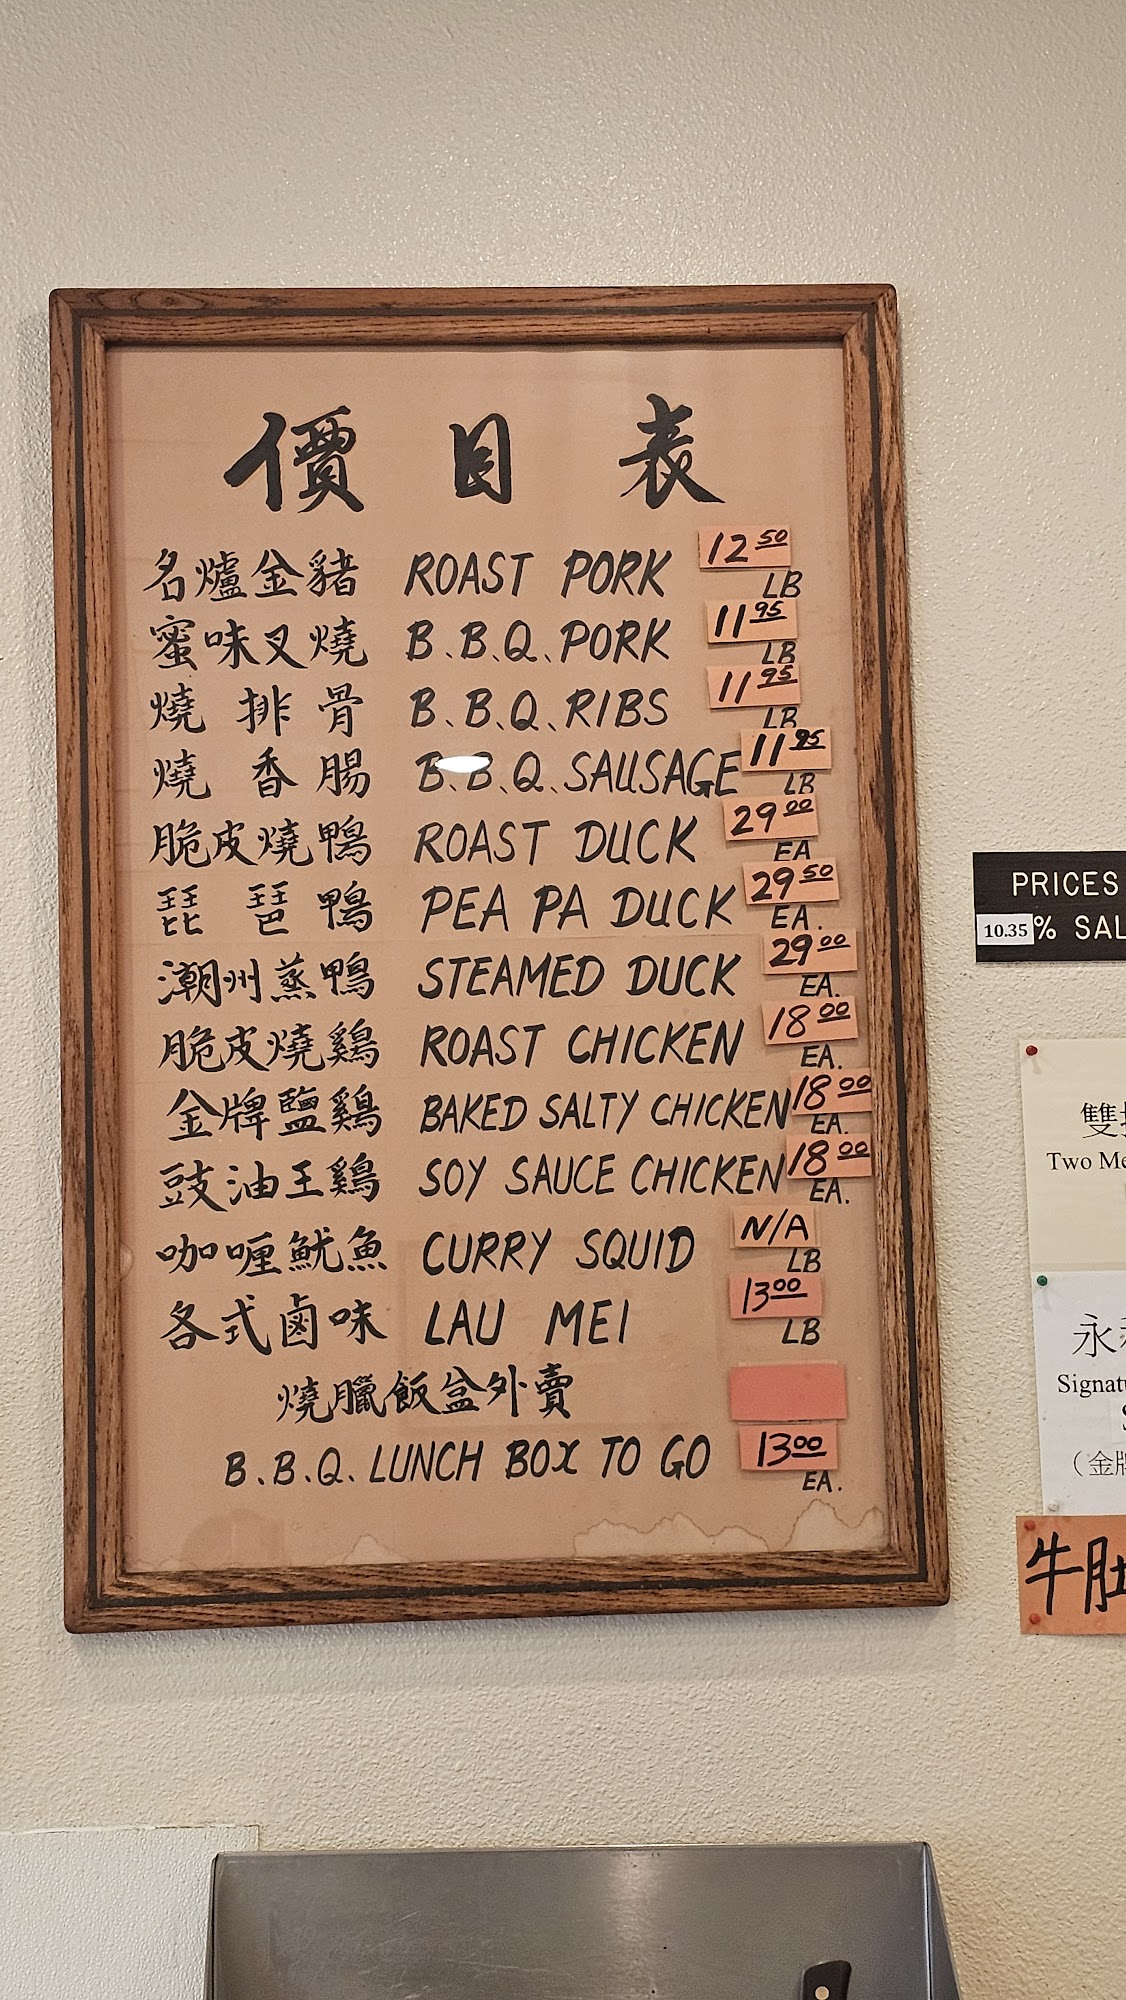 價目表
名爐金豬 ROAST PORK 12 50 LB
蜜味叉燒 B.B.Q.PORK 11 95 LB
燒排骨 B.B.Q.RIBS 11 95 LB
燒香腸 B.B.Q.SAUSAGE 11 95 LB
脆皮燒鴨 ROAST DUCK 29 00 EA
琵琶鴨 PEA PA DUCK 29 50 EA.
潮州蒸鴨 STEAMED DUCK 29 00 EA.
脆皮燒鷄 ROAST CHICKEN 18 00 EA.
金牌鹽鷄 BAKED SALTY CHICKEN 18 00 EA.
豉油王鷄 SOY SAUCE CHICKEN 18 00 EA.
咖喱魷魚 CURRY SQUID N/A LB
各式鹵味 LAU MEI 13 00 LB
燒臘飯盆外賣
B.B.Q. LUNCH BOX TO GO 13 00 EA.
PRICES
10.35% SAL
雙
Two Me
永
Signat
(金牌
牛肚